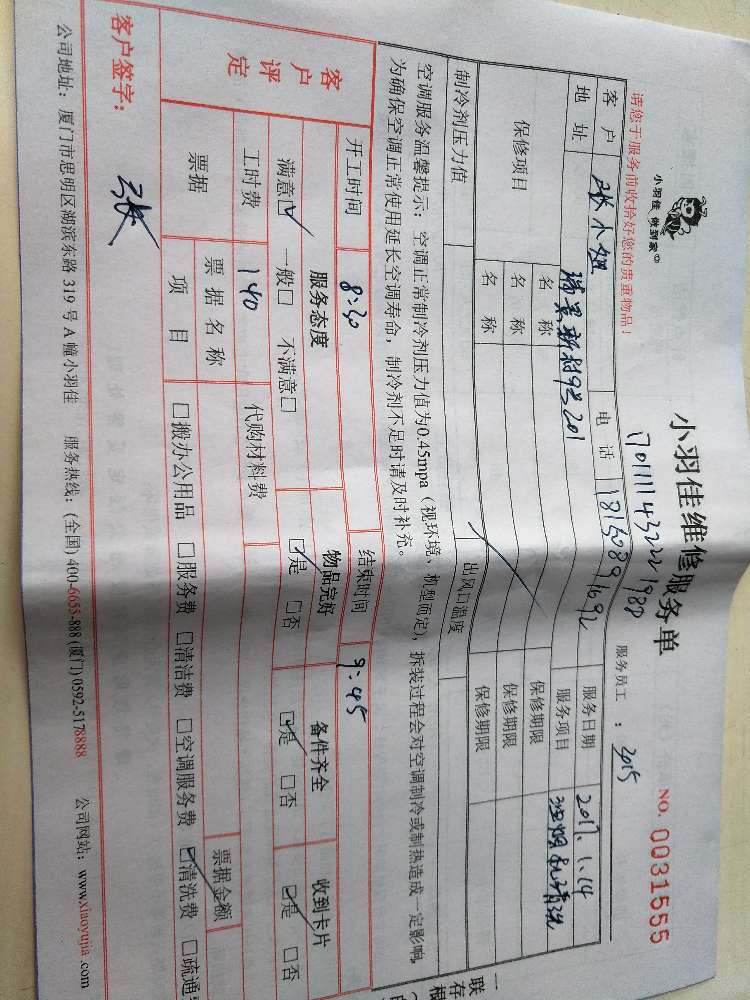 小羽佳 做到家
小羽佳维修服务单
NO. 0031555
170111143222 1988
请您于服务前收拾好您的贵重物品!
服务员工: 2015
客户 张小姐 电话 18150891692 服务日期 2017.1.14
地址 瑞景新村 201 服务项目 油烟机清洗
保修项目 名称 保修期限
名称 保修期限
名称 保修期限
制冷剂压力值 出风口温度
空调服务温馨提示:空调正常制冷剂压力值为0.45mpa(视环境、机型而定),拆装过程会对空调制冷或制热造成一定影响,
为确保空调正常使用延长空调寿命,制冷剂不足时请及时补充。
开工时间 8:30 结束时间 9:45
客户评定
服务态度 物品完好 备件齐全 收到卡片
满意☑ 一般□ 不满意□ ☑是 □否 ☑是 □否 ☑是 □否
工时费 140 代购材料费
票据 票据名称 票据金额
项目 □搬办公用品 □服务费 □清洁费 □空调服务费 ☑清洗费 □疏通
客户签字: 张
公司地址:厦门市思明区湖滨东路319号A幢小羽佳 服务热线:(全国)400-6655-888(厦门)0592-5178888 公司网站:www.xiaoyujia.com
一
联
存
根